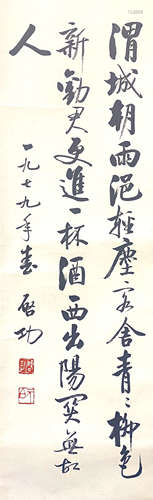 渭城朝雨浥輕塵客舍青〻柳色
新勸君更進一杯酒西出陽関無故
人
一九七九年春 啓功